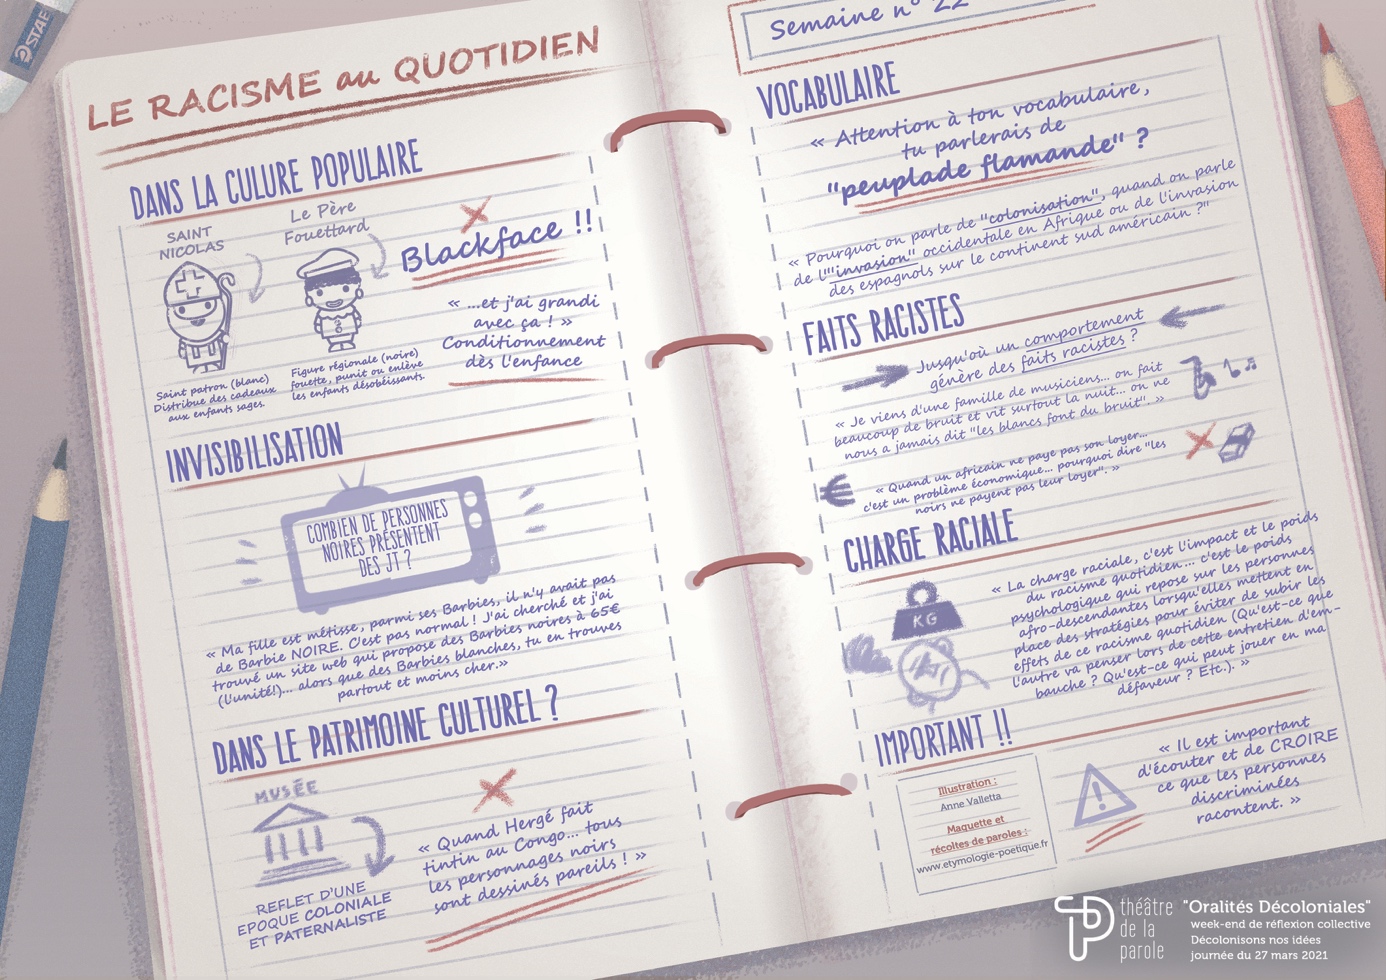 STAE
LE RACISME au QUOTIDIEN
DANS LA CULURE POPULAIRE
SAINT
NICOLAS
Le Père
Fouettard
Blackface !!
Saint patron (blanc)
Distribue des cadeaux
aux enfants sages.
Figure régionale (noire)
fouette, punit ou enlève
les enfants désobéissants.
« ...et j'ai grandi
avec ça ! »
Conditionnement
dès l'enfance
INVISIBILISATION
COMBIEN DE PERSONNES
NOIRES PRÉSENTENT
DES JT ?
« Ma fille est métisse, parmi ses Barbies, il n'y avait pas
de Barbie NOIRE. C'est pas normal ! J'ai cherché et j'ai
trouvé un site web qui propose des Barbies noires à 65€
(l'unité!)... alors que des Barbies blanches, tu en trouves
partout et moins cher.»
DANS LE PATRIMOINE CULTUREL ?
MUSÉE
REFLET D'UNE
EPOQUE COLONIALE
ET PATERNALISTE
« Quand Hergé fait
tintin au Congo... tous
les personnages noirs
sont dessinés pareils ! »
Semaine n° 22
VOCABULAIRE
« Attention à ton vocabulaire,
tu parlerais de
"peuplade flamande" ?
« Pourquoi on parle de "colonisation", quand on parle
de l'"invasion" occidentale en Afrique ou de l'invasion
des espagnols sur le continent sud américain ?"
FAITS RACISTES
Jusqu'où un comportement
génère des faits racistes ?
« Je viens d'une famille de musiciens... on fait
beaucoup de bruit et vit surtout la nuit... on ne
nous a jamais dit "les blancs font du bruit". »
€
« Quand un africain ne paye pas son loyer...
c'est un problème économique... pourquoi dire "les
noirs ne payent pas leur loyer". »
CHARGE RACIALE
KG
« La charge raciale, c'est l'impact et le poids
du racisme quotidien... c'est le poids
psychologique qui repose sur les personnes
afro-descendantes lorsqu'elles mettent en
place des stratégies pour éviter de subir les
effets de ce racisme quotidien (Qu'est-ce que
l'autre va penser lors de cette entretien d'em-
bauche ? Qu'est-ce qui peut jouer en ma
défaveur ? Etc.). »
IMPORTANT !!
Illustration :
Anne Valletta
Maquette et
récoltes de paroles :
www.etymologie-poetique.fr
!
« Il est important
d'écouter et de CROIRE
ce que les personnes
discriminées
racontent. »
théâtre
de la
parole
"Oralités Décoloniales"
week-end de réflexion collective
Décolonisons nos idées
journée du 27 mars 2021